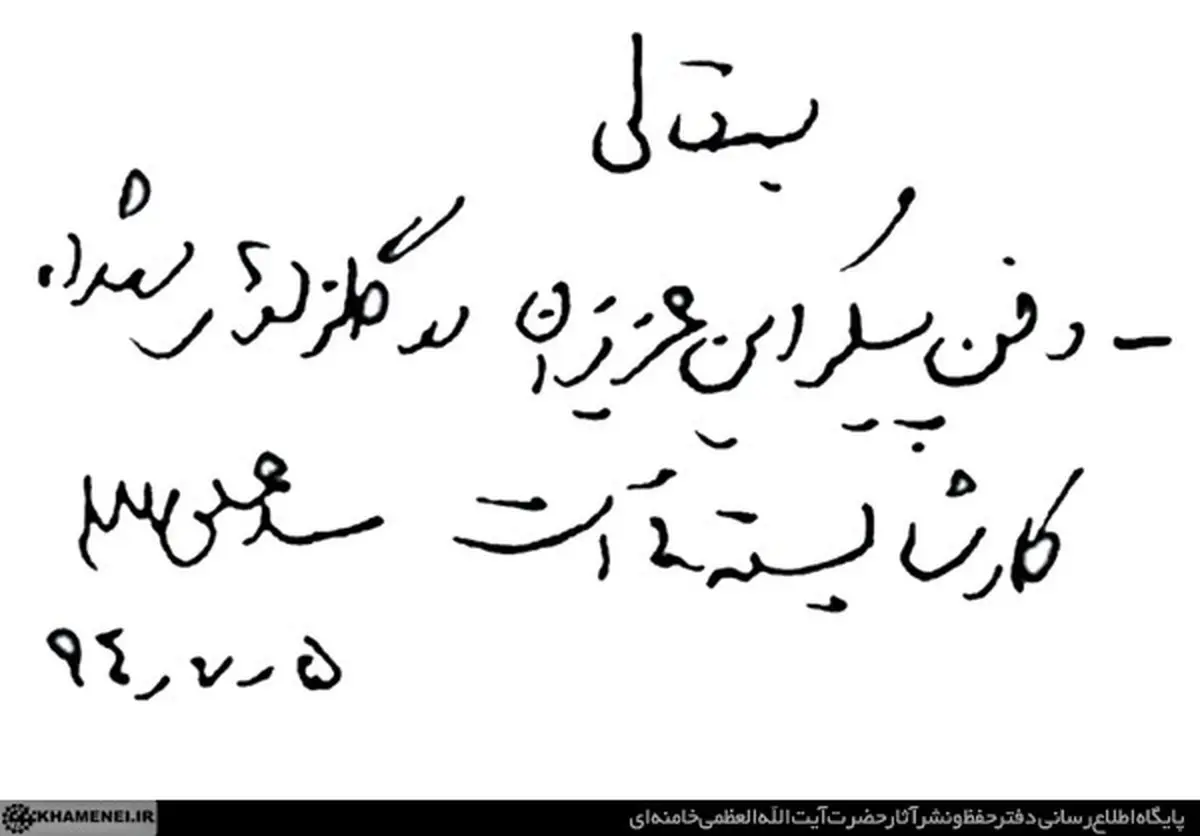 بسمه‌تعالی
- دفن پیکر این عزیزان در گلزارهای شهداء
کار شایسته‌ای است سیدعلی خامنه‌ای
۹۴٫۷٫۵
پایگاه اطلاع‌رسانی دفتر حفظ و نشر آثار حضرت آیت‌الله‌العظمی خامنه‌ای
KHAMENEI.IR